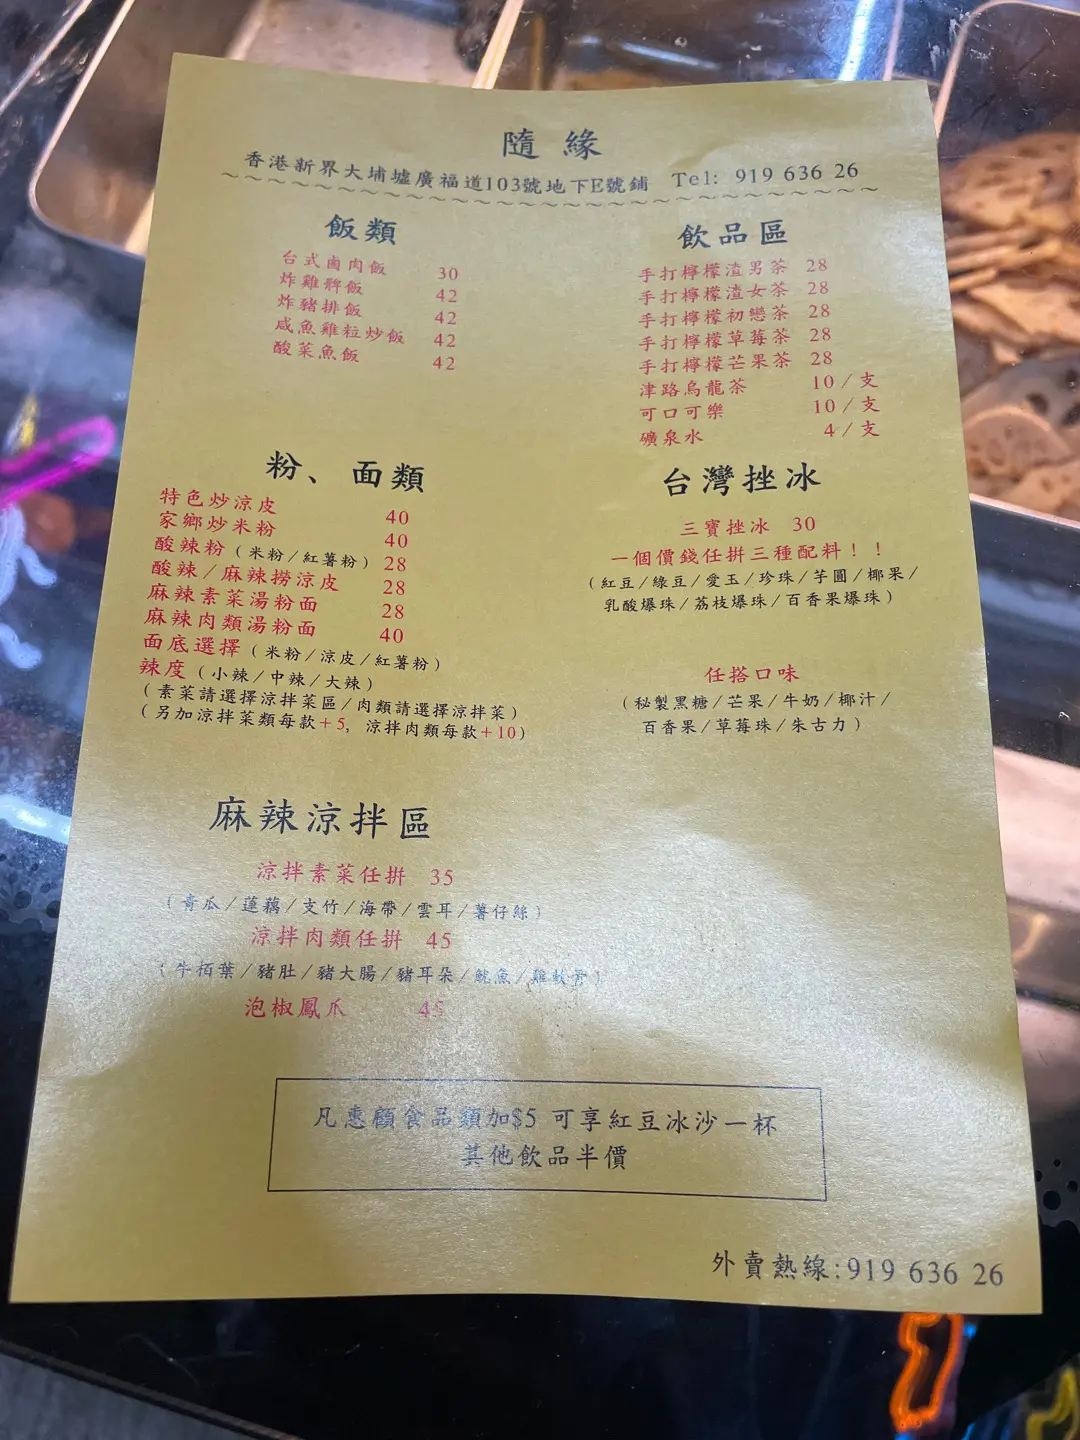 隨緣
香港新界大埔墟廣福道103號地下E號鋪 Tel: 919 636 26
飯類
台式鹵肉飯 30
炸雞髀飯 42
炸豬排飯 42
咸魚雞粒炒飯 42
酸菜魚飯 42
飲品區
手打檸檬渣男茶 28
手打檸檬渣女茶 28
手打檸檬初戀茶 28
手打檸檬草莓茶 28
手打檸檬芒果茶 28
津路烏龍茶 10/支
可口可樂 10/支
礦泉水 4/支
粉、面類
特色炒涼皮 40
家鄉炒米粉 40
酸辣粉(米粉/紅薯粉) 28
酸辣/麻辣撈涼皮 28
麻辣素菜湯粉面 28
麻辣肉類湯粉面 40
面底選擇(米粉/涼皮/紅薯粉)
辣度(小辣/中辣/大辣)
(素菜請選擇涼拌菜區/肉類請選擇涼拌菜)
(另加涼拌菜類每款+5, 涼拌肉類每款+10)
台灣挫冰
三寶挫冰 30
一個價錢任拼三種配料!!
(紅豆/綠豆/愛玉/珍珠/芋圓/椰果/
乳酸爆珠/荔枝爆珠/百香果爆珠)
任搭口味
(秘製黑糖/芒果/牛奶/椰汁/
百香果/草莓珠/朱古力)
麻辣涼拌區
涼拌素菜任拼 35
(青瓜/蓮藕/支竹/海帶/雲耳/薯仔絲)
涼拌肉類任拼 45
(牛栢葉/豬肚/豬大腸/豬耳朵/魷魚/雞軟骨)
泡椒鳳爪 45
凡惠顧食品類加$5 可享紅豆冰沙一杯
其他飲品半價
外賣熱線:919 636 26